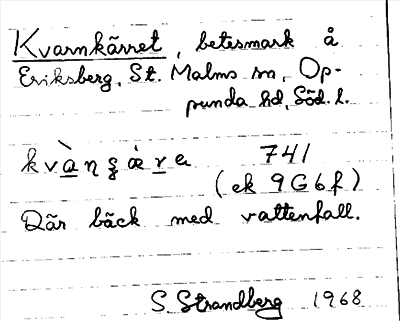 Kvarnkärret, betesmark å
Eriksberg, St. Malms sn, Op-
punda hd, Söd. l.
741
(ek 9G6f)
Där bäck med vattenfall.
S. Strandberg 1968